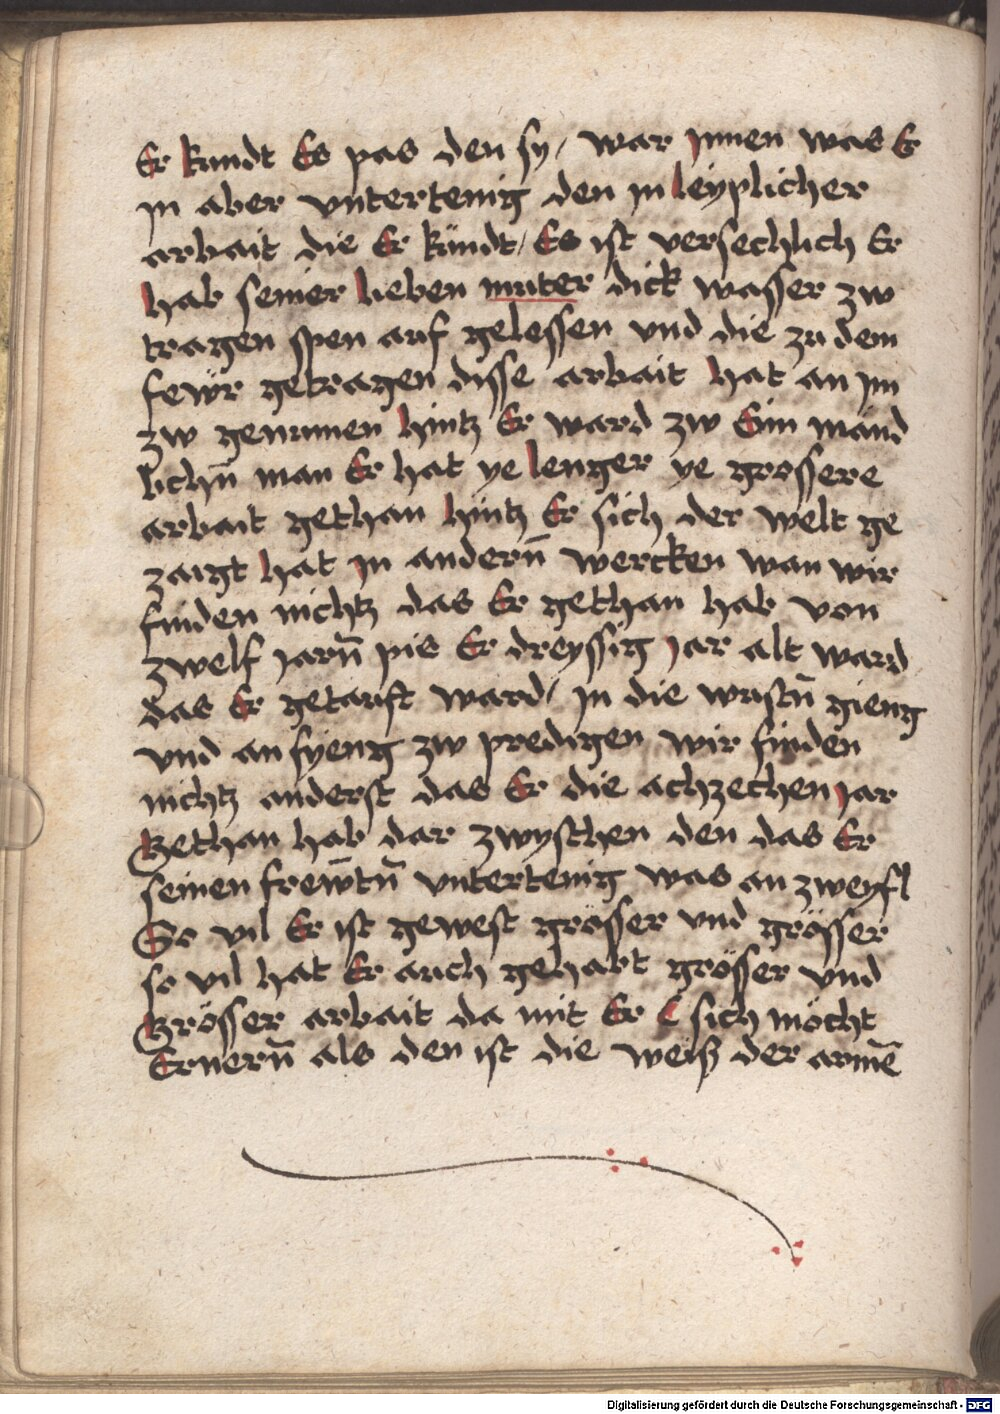 Er kundt Es pas den sy / war Jnnen was Er
jn aber vntertenig den jn leyplicher
arbait die Er kündt / Es ist versechlich Er
hab seiner lieben muter dick wasser zw
tragen spen auf gelessen vnd die zu dem
fewr getragen disse arbait hat an jm
zw genumen hintz Er ward zw Eim mänd
lichn̄ man Er hat ye lenger ye grossere
arbait gethan hintz Er sich der welt ge
zaigt hat jn andern̄ wercken wan wir
finden nichtz das Er gethan hab von
zwelf jarn̄ pis Er dreyssig jar alt ward
das Er getauft ward / jn die wüstn̄ gieng
vnd an fyeng zw predigen wir finden
nichtz anderst das Er die achzechen jar
Gethan hab dar zwyschen den das Er
seinen frew̄tn̄ vntertenig was an zweyfl
So vil Er ist gewest grösser vnd grösser
so vil hat Er auch gehabt grösser vnd
Grösser arbait da mit Er sich möcht
Ernern̄ als den ist die weiß der armē
Digitalisierung gefördert durch die Deutsche Forschungsgemeinschaft - DFG